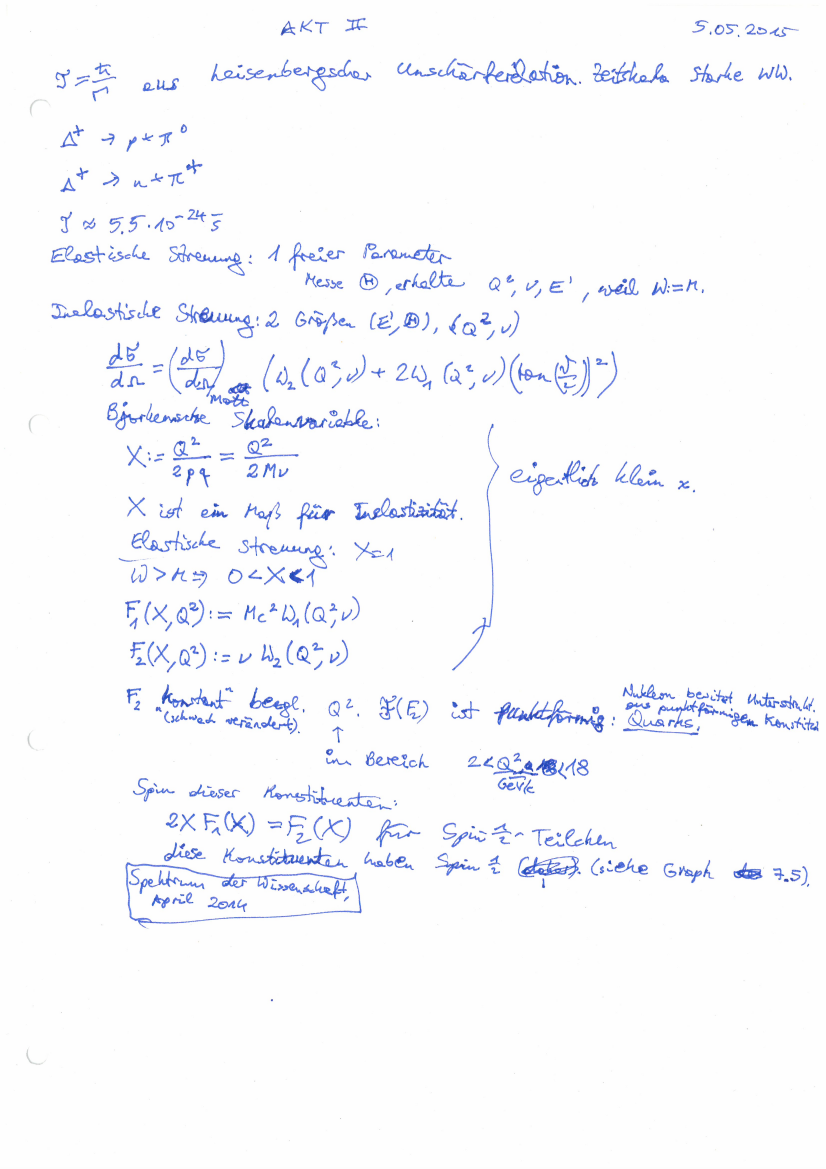 AKT II 5.05.2015
τ = ħ/Γ aus Heisenbergscher Unschärferelation. Zeitskala starke WW.
Δ⁺ → p + π⁰
Δ⁺ → n + π⁺
τ ≈ 5.5·10⁻²⁴ s
Elastische Streuung: 1 freier Parameter
Messe Θ, erhalte Q², ν, E', weil W:=M.
Inelastische Streuung: 2 Größen (E', Θ), (Q², ν)
dσ/dΩ = (dσ/dΩ)Mott (W₂(Q², ν) + 2W₁(Q², ν)(tan(ϑ/2))²)
Bjorkensche Skalenvariable:
X := Q²/2pq = Q²/2Mν
eigentlich klein x.
X ist ein Maß für Inelastizität.
Elastische Streuung: X=1
W > M ⇒ 0 < X < 1
F₁(X,Q²) := Mc² W₁(Q², ν)
F₂(X,Q²) := ν W₂(Q², ν)
Nukleon besitzt Unterstrukt.
aus punktförmigen Konstitu
F₂ "konstant" bezgl. Q². F(F₂) ist punktförmig: Quarks.
(schwach verändert).
↑
im Bereich 2 < Q² < 18
GeV/c
Spin dieser Konstituenten:
2X F₁(X) = F₂(X) für Spin ½ - Teilchen
diese Konstituenten haben Spin ½ (siehe Graph 7.5).
Spektrum der Wissenschaft,
April 2014